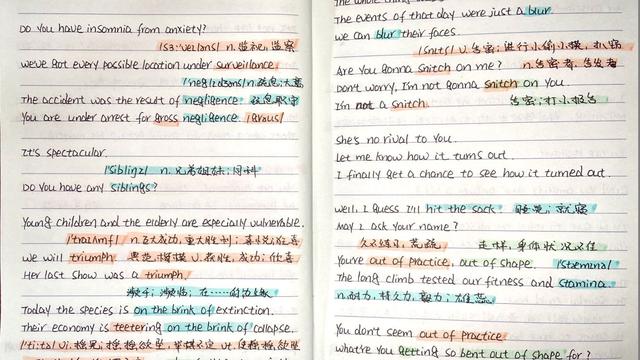 Do you have insomnia from anxiety?
/sɜːˈveɪləns/ n. 监视，监察
we've got every possible location under surveilance.
/ˈneglɪdʒəns/ n. 疏忽；大意
The accident was the result of negligence. 疏忽职守
You are under arrest for gross negligence. /grəʊs/
It's spectacular.
/ˈsɪblɪŋz/ n. 兄弟姐妹；同科
Do you have any siblings?
Young children and the elderly are especially vulnerable.
/ˈtraɪʌmf/ n. 巨大成功，重大胜利；喜悦
We will triumph. 获胜，成功；
Her last show was a triumph.
濒于；濒临；在……的边缘
Today the species is on the brink of extinction.
Their economy is teetering on the brink of collapse.
The whole thing
The events of that day were just a blur.
we can blur their faces.
/snɪtʃ/ 告密；进行小偷小摸
Are you gonna snitch on me? n. 告密者，告发者
Don't worry, I'm not gonna snitch on you.
I'm not a snitch. 告密；打小报告
She's no rival to you.
Let me know how it turns out.
I finally get a chance to see how it turned out.
Well, I guess I'll hit the sack. 睡觉；就寝
May I ask your name?
久不练习，荒疏 走样，身体状况不佳
You're out of practice, out of shape. /ˈstæmɪnə/
The long climb tested our fitness and stamina.
n. 耐力，持久力，毅力；雄蕊
You don't seem out of practice.
what're you getting so bent out of shape for?